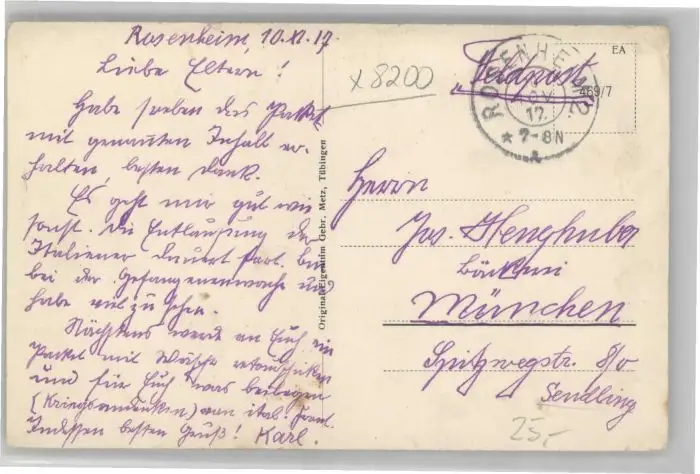 Rosenheim, 10.XI.17.
Liebe Eltern!
Habe soeben das Paket
mit genanntem Inhalt er-
halten, besten Dank.
Es geht mir gut wie
sonst. Die Entlausung der
Italiener dauert fort, bin
bei der Gefangenenwache und
habe viel zu sehen.
Nächstens werde an Euch ein
Paket mit Wäsche retourschicken
und für Euch was beilegen
(Kriegsandenken) von ital.
Indessen besten Gruß! Karl.
Original-Eigentum Gebr. Metz, Tübingen
x 8200
Feldpost
ROSENHEIM
NOV.
17.
* 7-8N
EA
469/7
Herrn
Jos. Henghuber
Bäckerei
München
Spitzwegstr. 8/0
Sendling
25,-